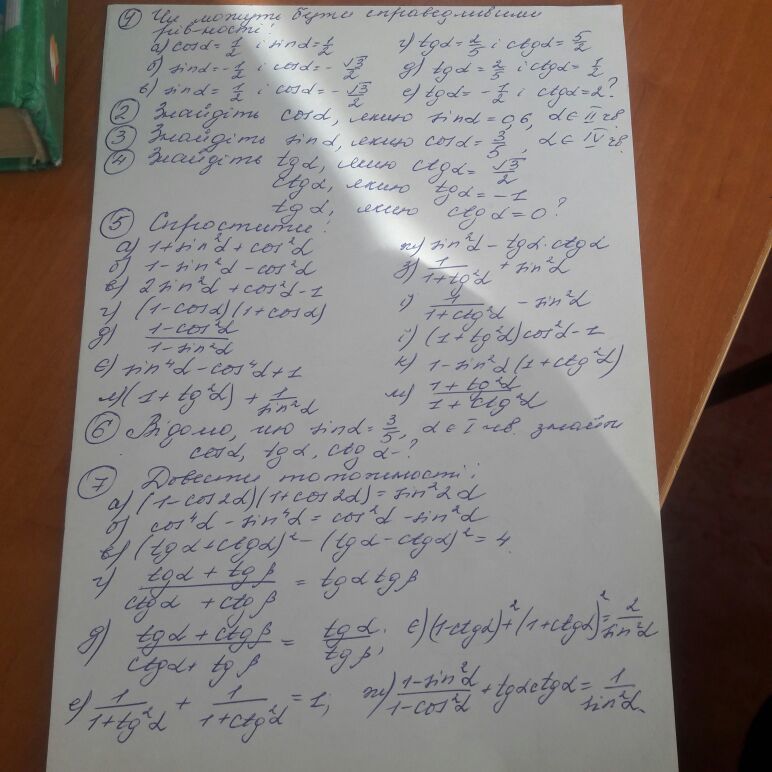 ① Чи можуть бути справедливими
рівності:
а) cosα = 1/2 і sinα = 1/2 г) tgα = 2/5 і ctgα = 5/2
б) sinα = -1/2 і cosα = -√3/2 д) tgα = 2/5 і ctgα = 1/2
в) sinα = 1/2 і cosα = -√3/2 е) tgα = -1/2 і ctgα = 2?
② Знайдіть cosα, якщо sinα = 0,6, α ∈ II чв.
③ Знайдіть sinα, якщо cosα = 3/5, α ∈ IV чв.
④ Знайдіть tgα, якщо ctgα = √3/2
ctgα, якщо tgα = -1
tgα, якщо ctgα = 0?
⑤ Спростити:
а) 1 + sin²α + cos²α ж) sin²α - tgα · ctgα
б) 1 - sin²α - cos²α з) 1/(1+tg²α) + sin²α
в) 2sin²α + cos²α - 1 і) 1/(1+ctg²α) - sin²α
г) (1-cosα)(1+cosα) ї) (1+tg²α)cos²α - 1
д) (1-cos²α)/(1-sin²α) к) 1 - sin²α(1+ctg²α)
є) sin⁴α - cos⁴α + 1 м) (1+tg²α)/(1+ctg²α)
л) (1+tg²α) + 1/sin²α
⑥ Відомо, що sinα = 3/5, α ∈ I чв. знайти
cosα, tgα, ctgα - ?
⑦ Довести тотожності:
а) (1-cos2α)(1+cos2α) = sin²2α
б) cos⁴α - sin⁴α = cos²α - sin²α
в) (tgα + ctgα)² - (tgα - ctgα)² = 4
г) (tgα + tgβ)/(ctgα + ctgβ) = tgα tgβ
д) (tgα + ctgβ)/(ctgα + tgβ) = tgα/tgβ; є) (1-ctgα)² + (1+ctgα)² = 2/sin²α
е) 1/(1+tg²α) + 1/(1+ctg²α) = 1; ж) (1-sin²α)/(1-cos²α) + tgα ctgα = 1/sin²α.